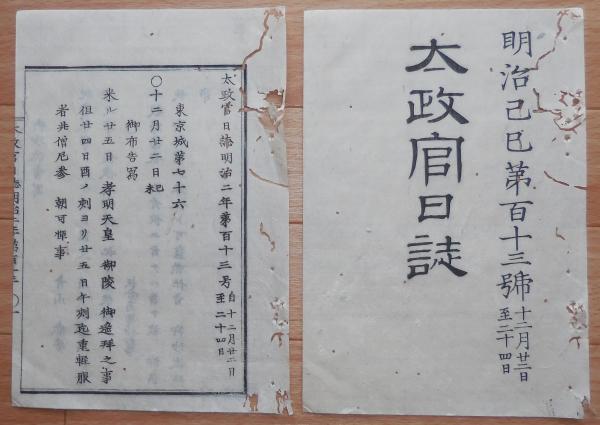 明治己巳第百十三號 十二月廿二日 至二十四日
太政官日誌
太政官日誌明治二年第百十三号 自十二月廿二日 至二十四日
東京城第七十六
〇十二月廿二日 紀
御布告寫
来ル廿五日 孝明天皇 御陵 御遙拝之事
但廿四日酉ノ刻ヨリ廿五日午刻迄重輕服
者并僧尼参 朝可憚事